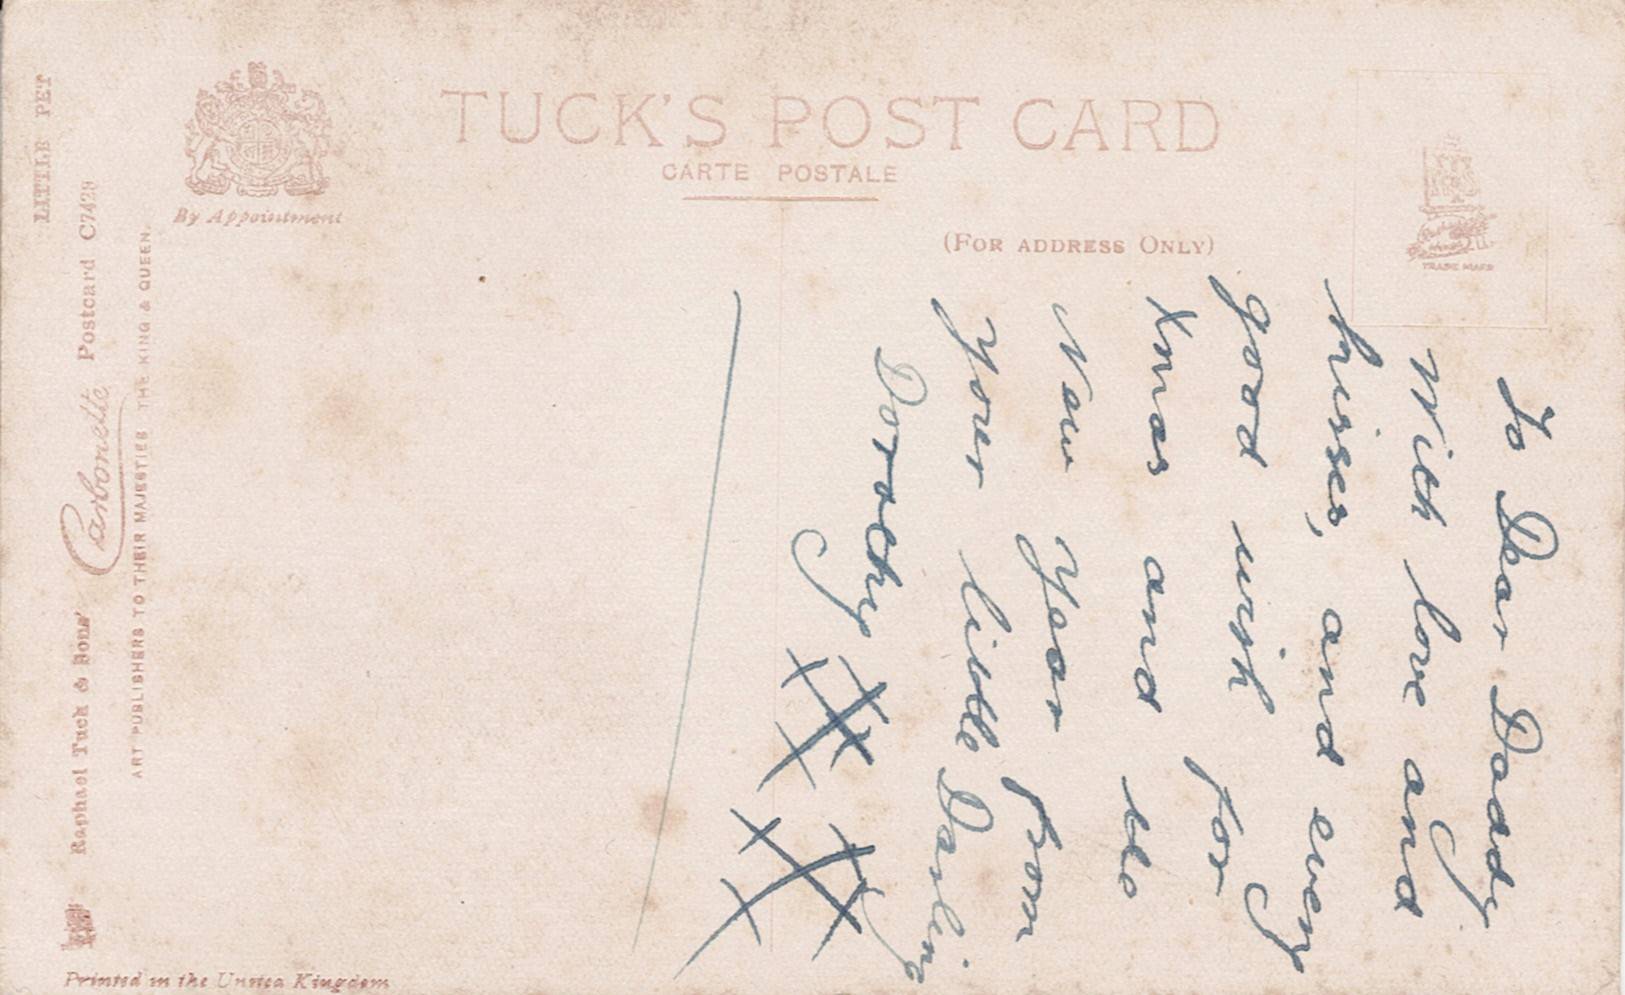 TUCK'S POST CARD
CARTE POSTALE
(FOR ADDRESS ONLY)
By Appointment
TRADE MARK
LITTLE PET
Raphael Tuck & Sons' Carbonette Postcard C7429
ART PUBLISHERS TO THEIR MAJESTIES THE KING & QUEEN.
Printed in the United Kingdom
To Dear Daddy
With love and
kisses, and every
good wish for
Xmas and the
New Year from
Your little Darling
Dorothy XXX
XXXX